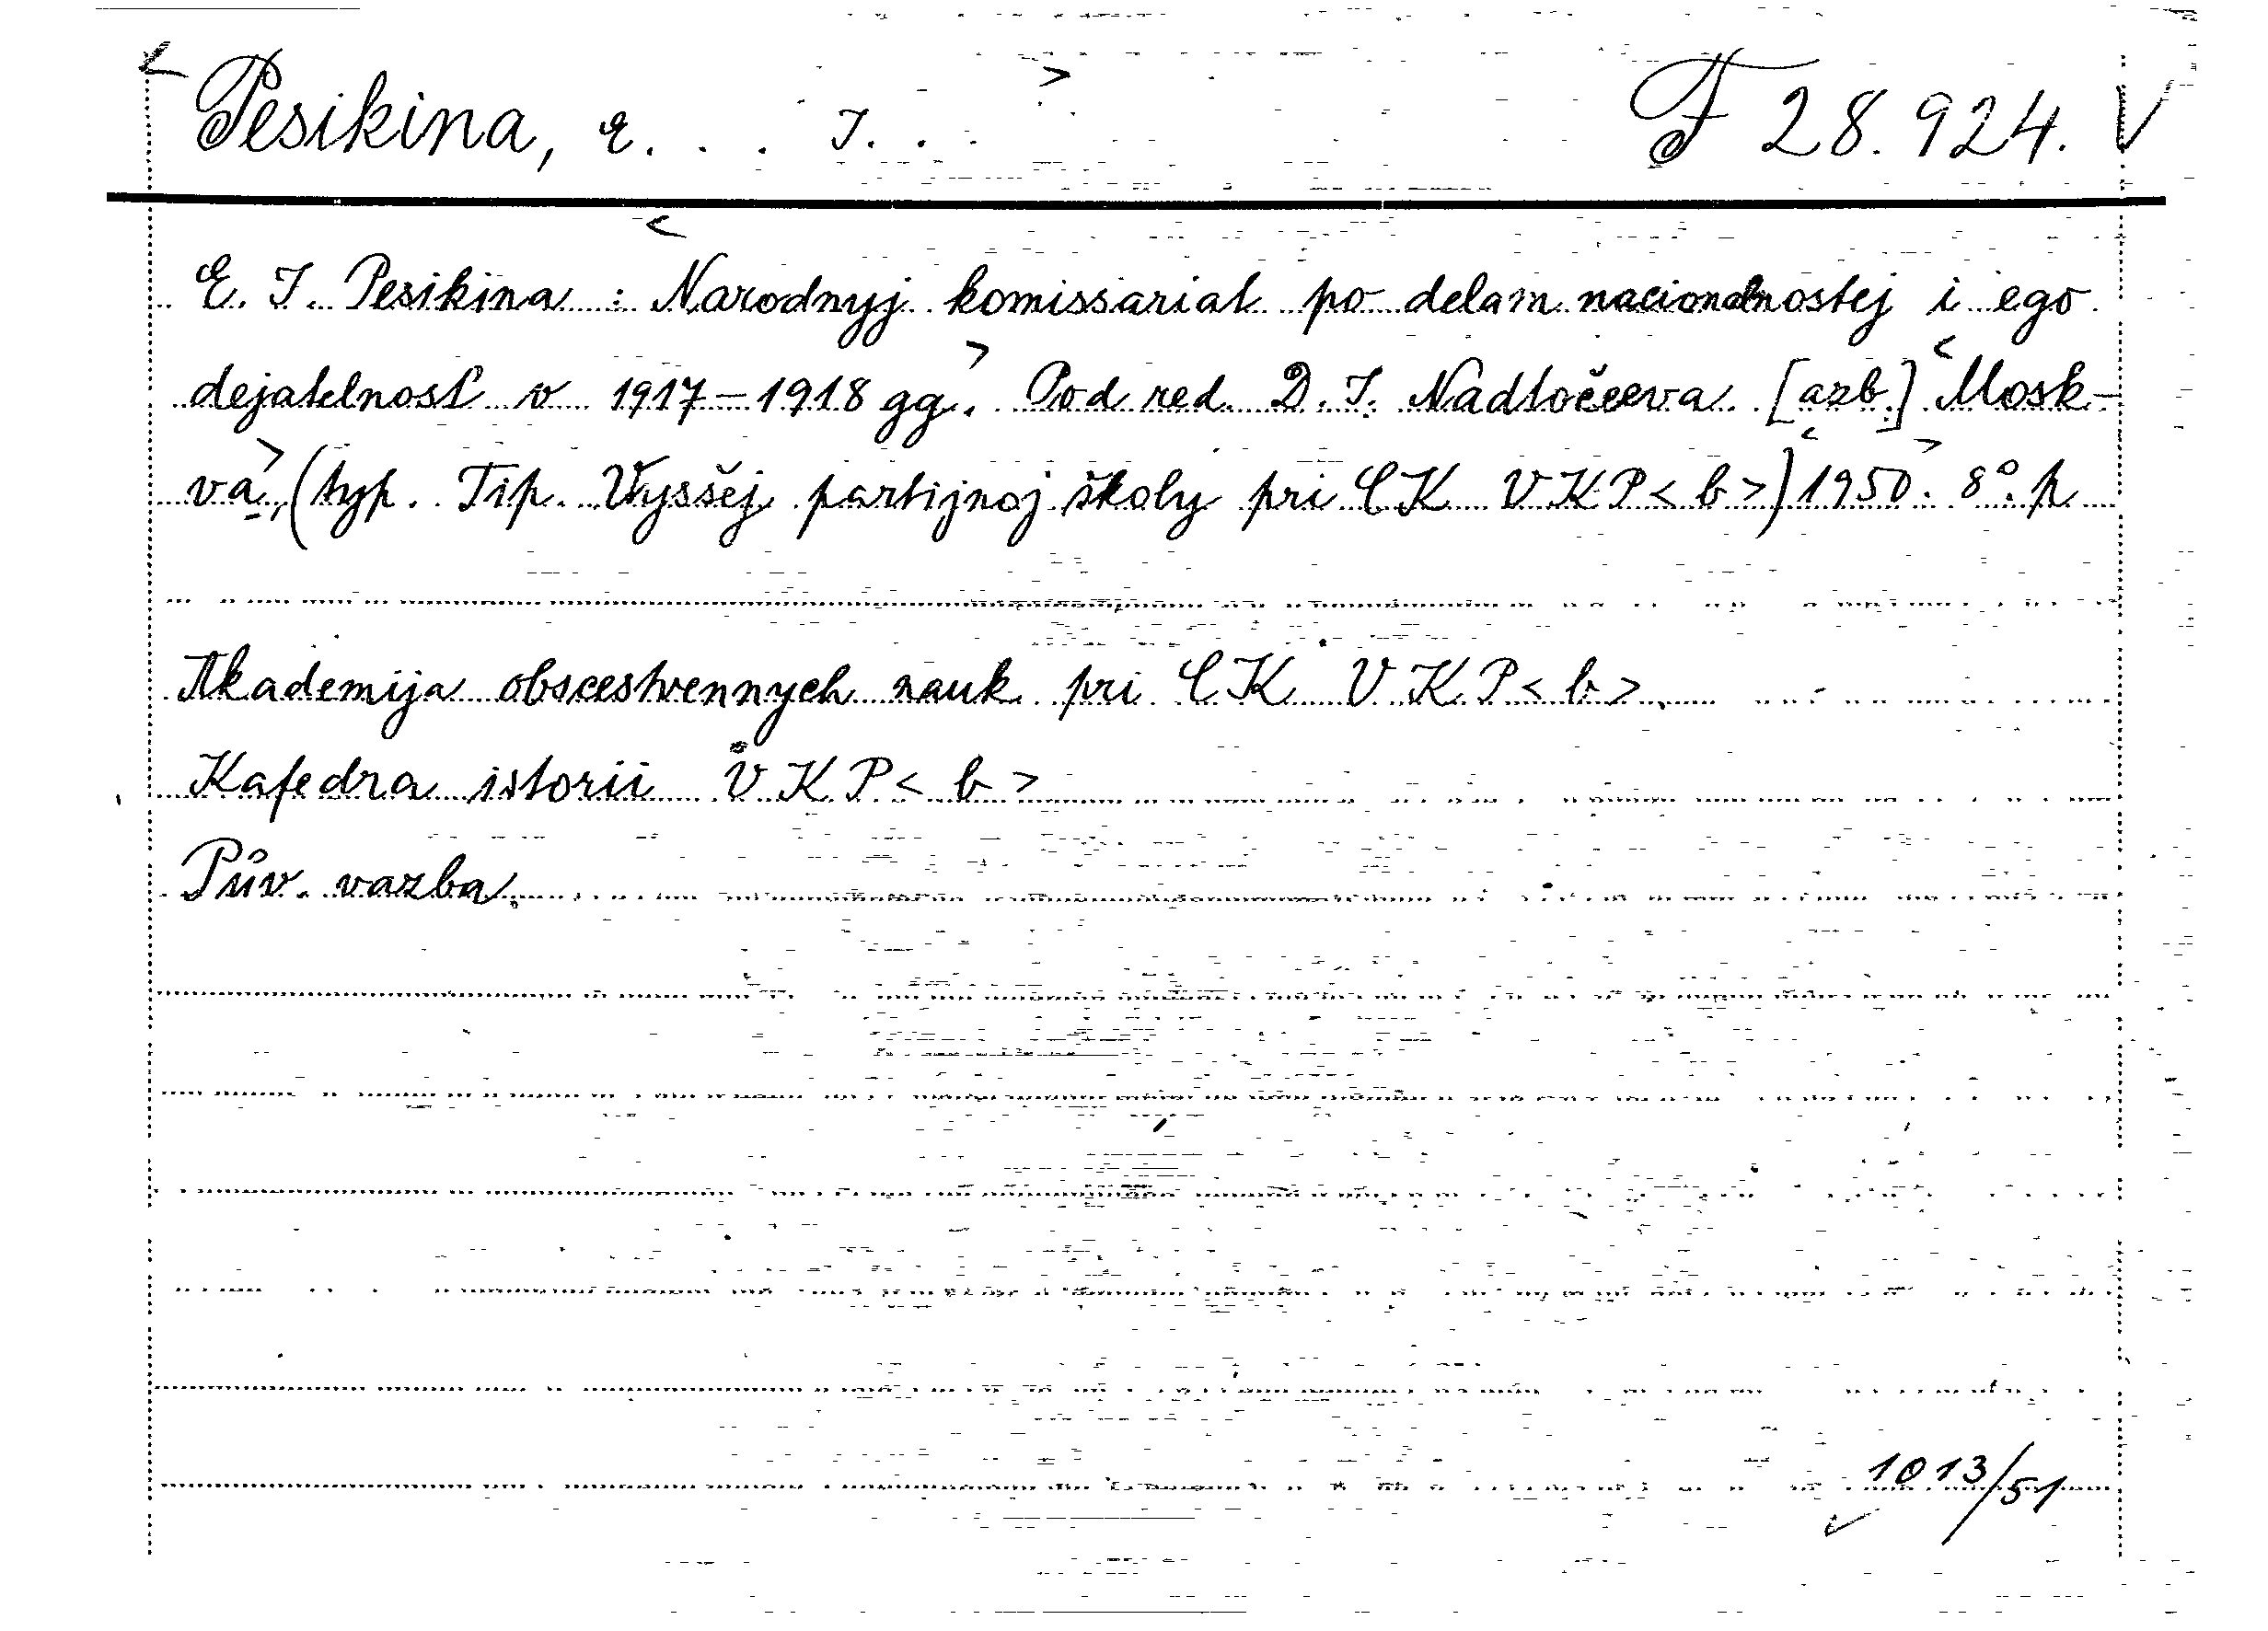 Pesikina, E. . . I. . . F 28.924. V
E. I. Pesikina : Narodnyj komissariat po delam nacionalnostej i ego
dejatelnosť v 1917–1918 gg. Pod red. D. I. Nadtočeeva. [azb.] Mosk-
va, (typ. Tip. Vysšej partijnoj školy pri CK VKP<b>) 1950. 8°. p
Akademija obscestvennych nauk pri CK VKP<b>.
Kafedra istorii VKP<b>
Pův. vazba.
1013/51